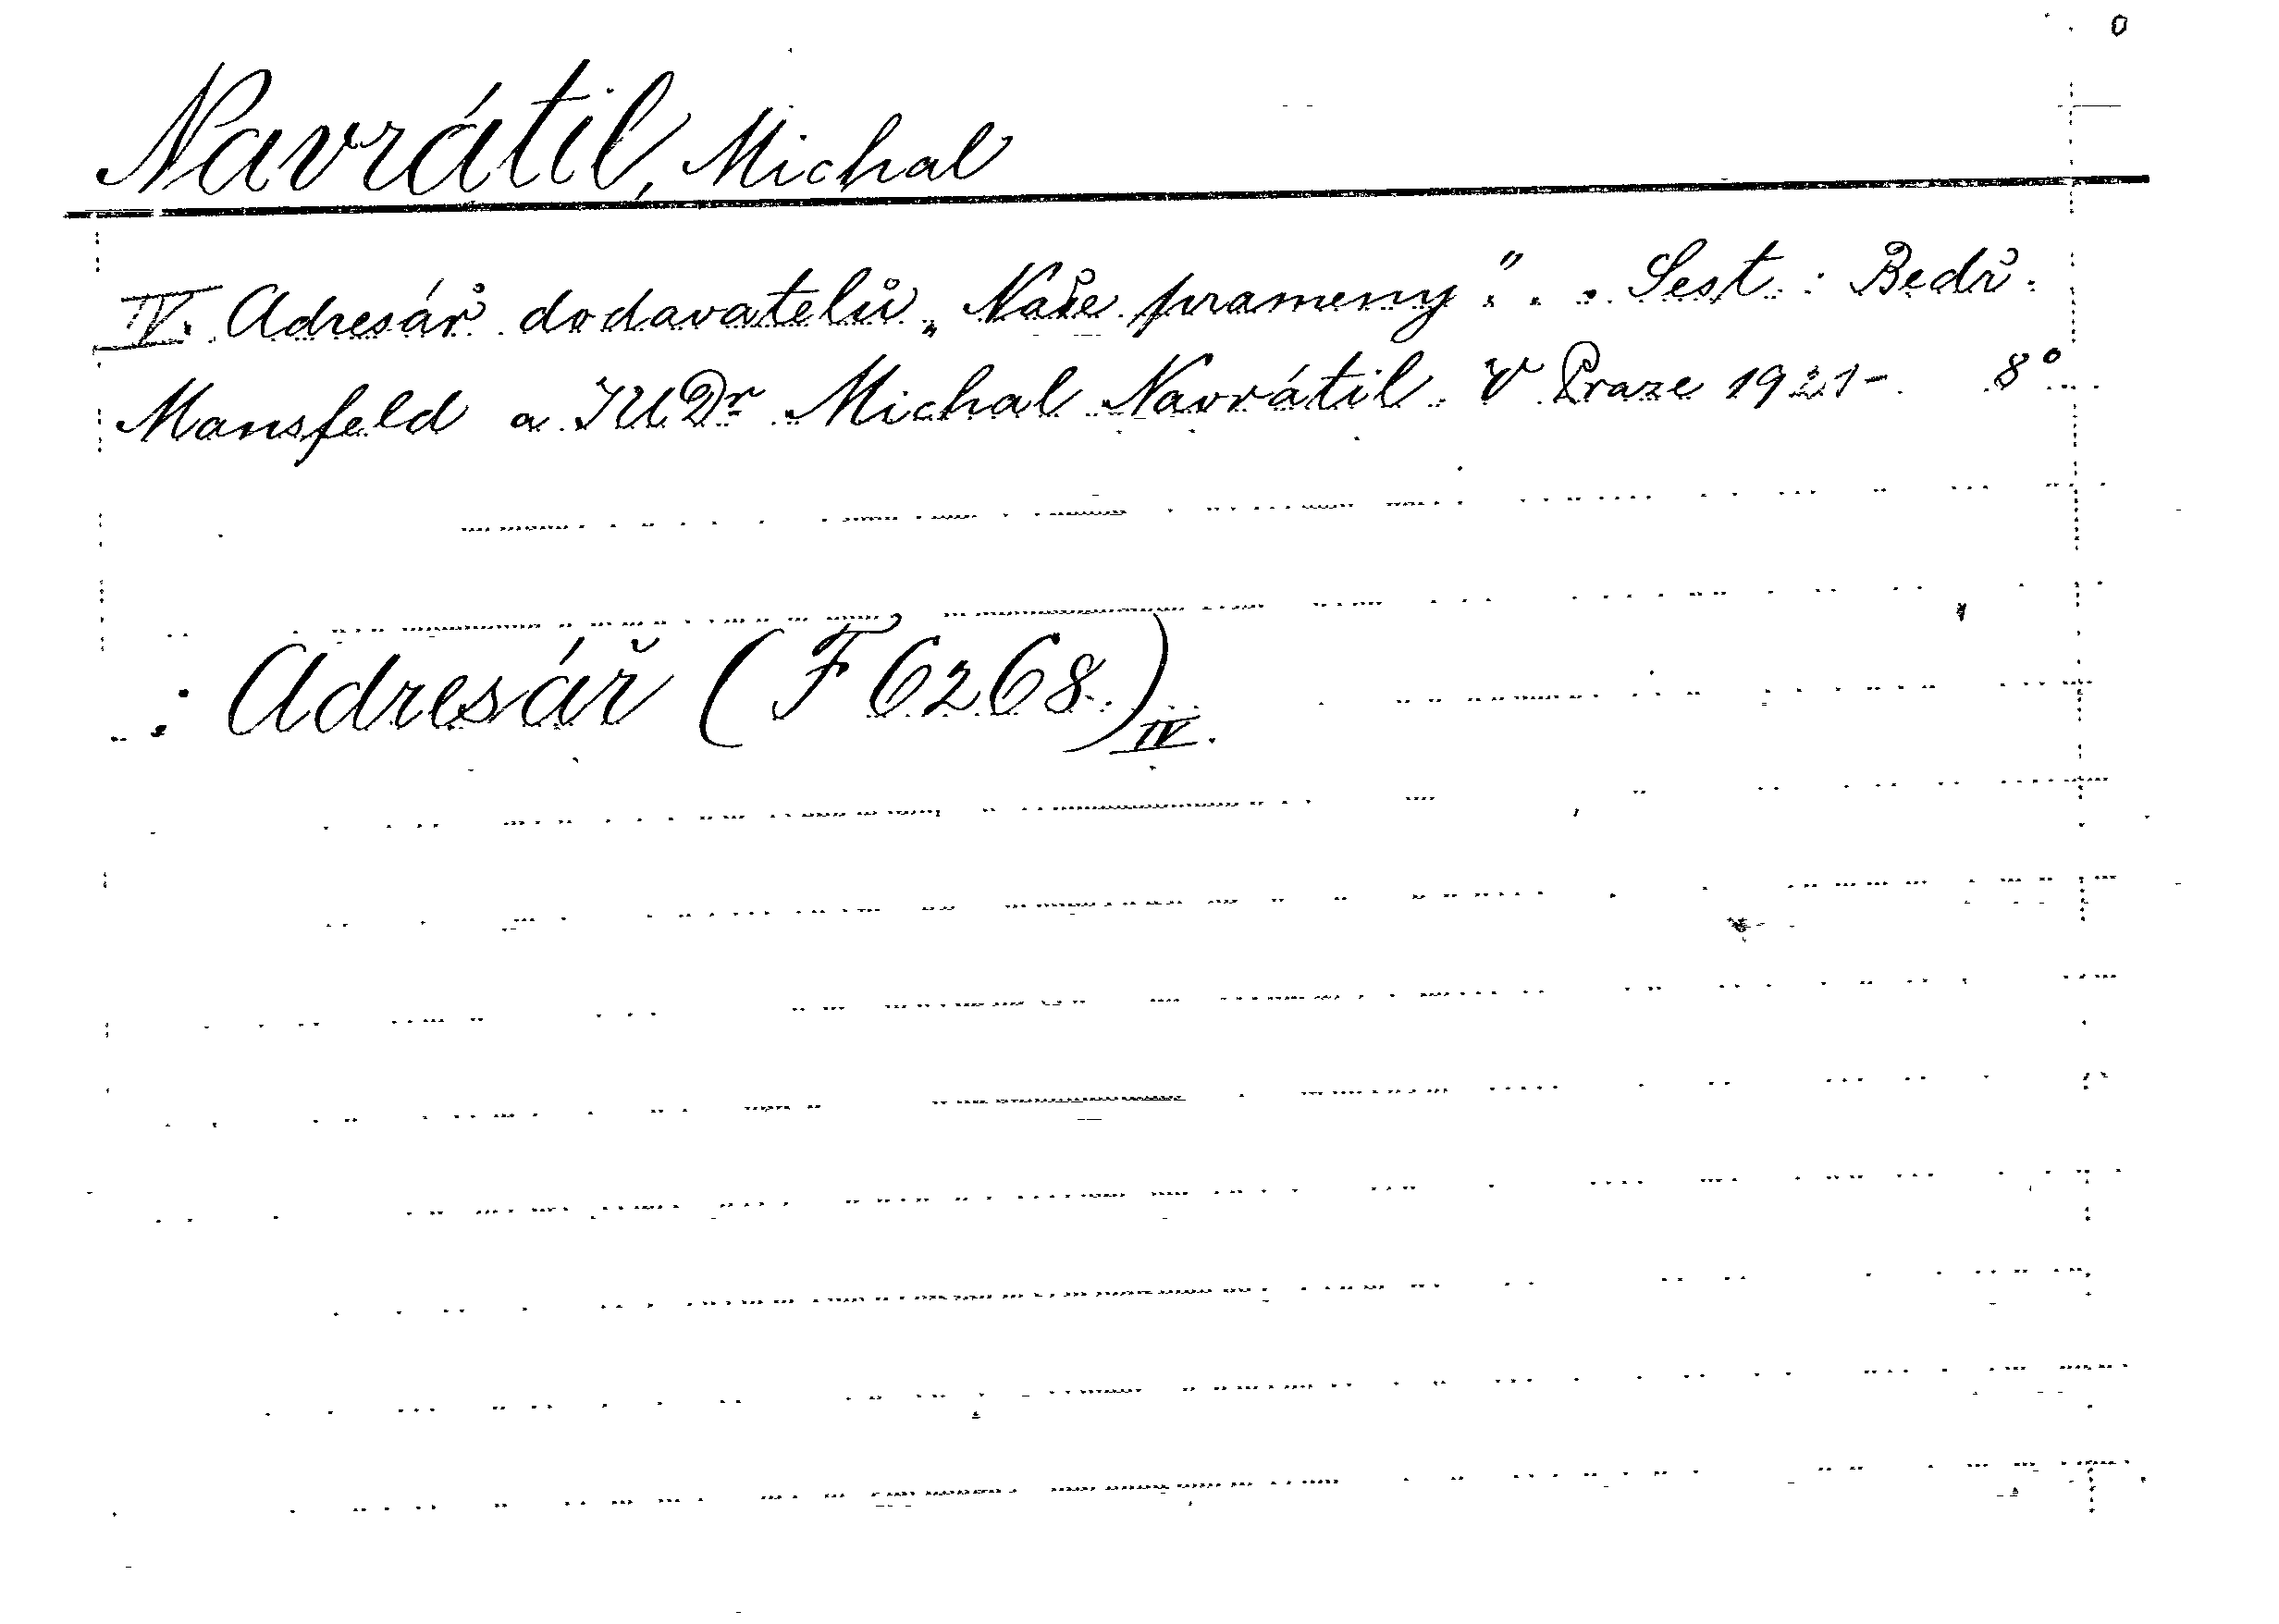 Navrátil, Michal
IV. Adresář dodavatelů „Naše prameny“... Sest.: Bedř.
Mansfeld a JUDr Michal Navrátil. V Praze 1921-. 8°
: Adresář (F 6268) IV.